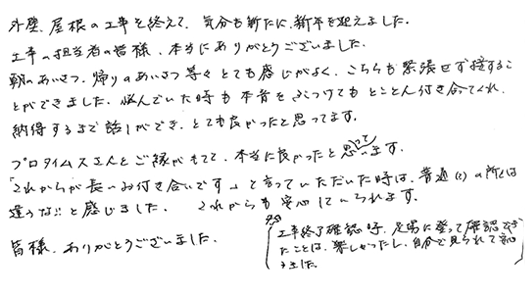 外壁、屋根の工事を終えて、気分も新たに、新年を迎えました。
工事の担当者の皆様、本当にありがとうございました。
朝のあいさつ、帰りのあいさつ等々とても感じがよく、こちらも緊張せず接するこ
とができました。悩んでいた時も本音をぶつけてもとことん付き合てくれ、
納得するまで話しができ、とても良かったと思ってます。
プロタイムズさんとご縁がもてて、本当に良かったと思って
います。
「これからが長いお付き合いです」と言っていただいた時は、普通の所とは
違うな!!と感じました。これからも安心していられます。
皆様、ありがとうございました。
工事終了確認時、足場に登って確認でき
たことは、楽しかったし、自分で見られて
ました。